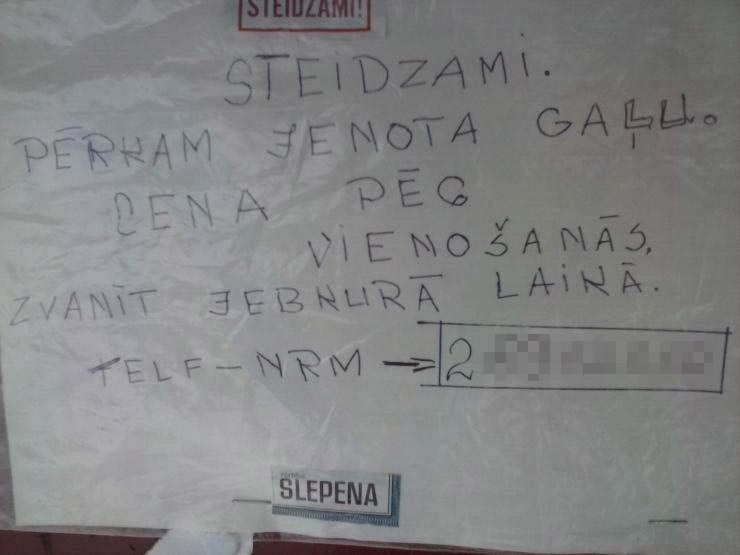 STEIDZAMI!
STEIDZAMI.
PĒRKAM JENOTA GAĻU.
CENA PĒC
VIENOŠANĀS.
ZVANĪT JEBKURĀ LAIKĀ.
TELF-NRM → 2
SLEPENA